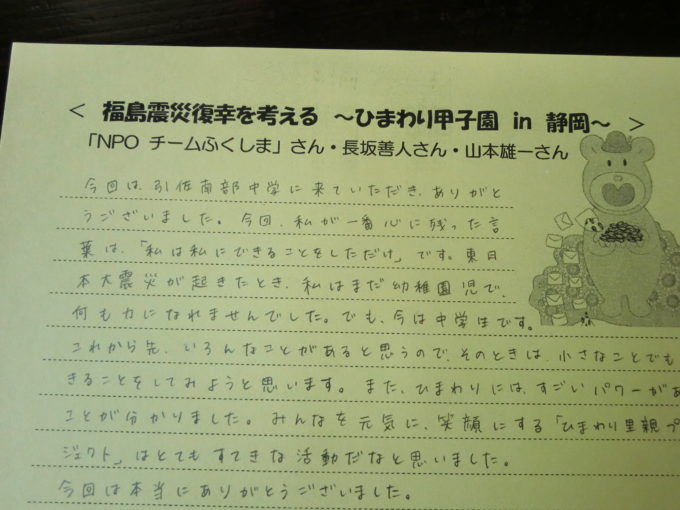 ＜ 福島震災復幸を考える ～ひまわり甲子園 in 静岡～ ＞
「NPO チームふくしま」さん・長坂善人さん・山本雄一さん
今回は、引佐南部中学に来ていただき、ありがと
うございました。今回、私が一番心に残った言
葉は、「私は私にできることをしただけ」です。東日
本大震災が起きたとき、私はまだ幼稚園児で、
何も力になれませんでした。でも、今は中学生です。
これから先、いろんなことがあると思うので、そのときは、小さなことでも
きることをしてみようと思います。また、ひまわりには、すごいパワーがあ
ことが分かりました。みんなを元気に、笑顔にする「ひまわり里親プ
ジェクト」はとてもすてきな活動だなと思いました。
今回は本当にありがとうございました。